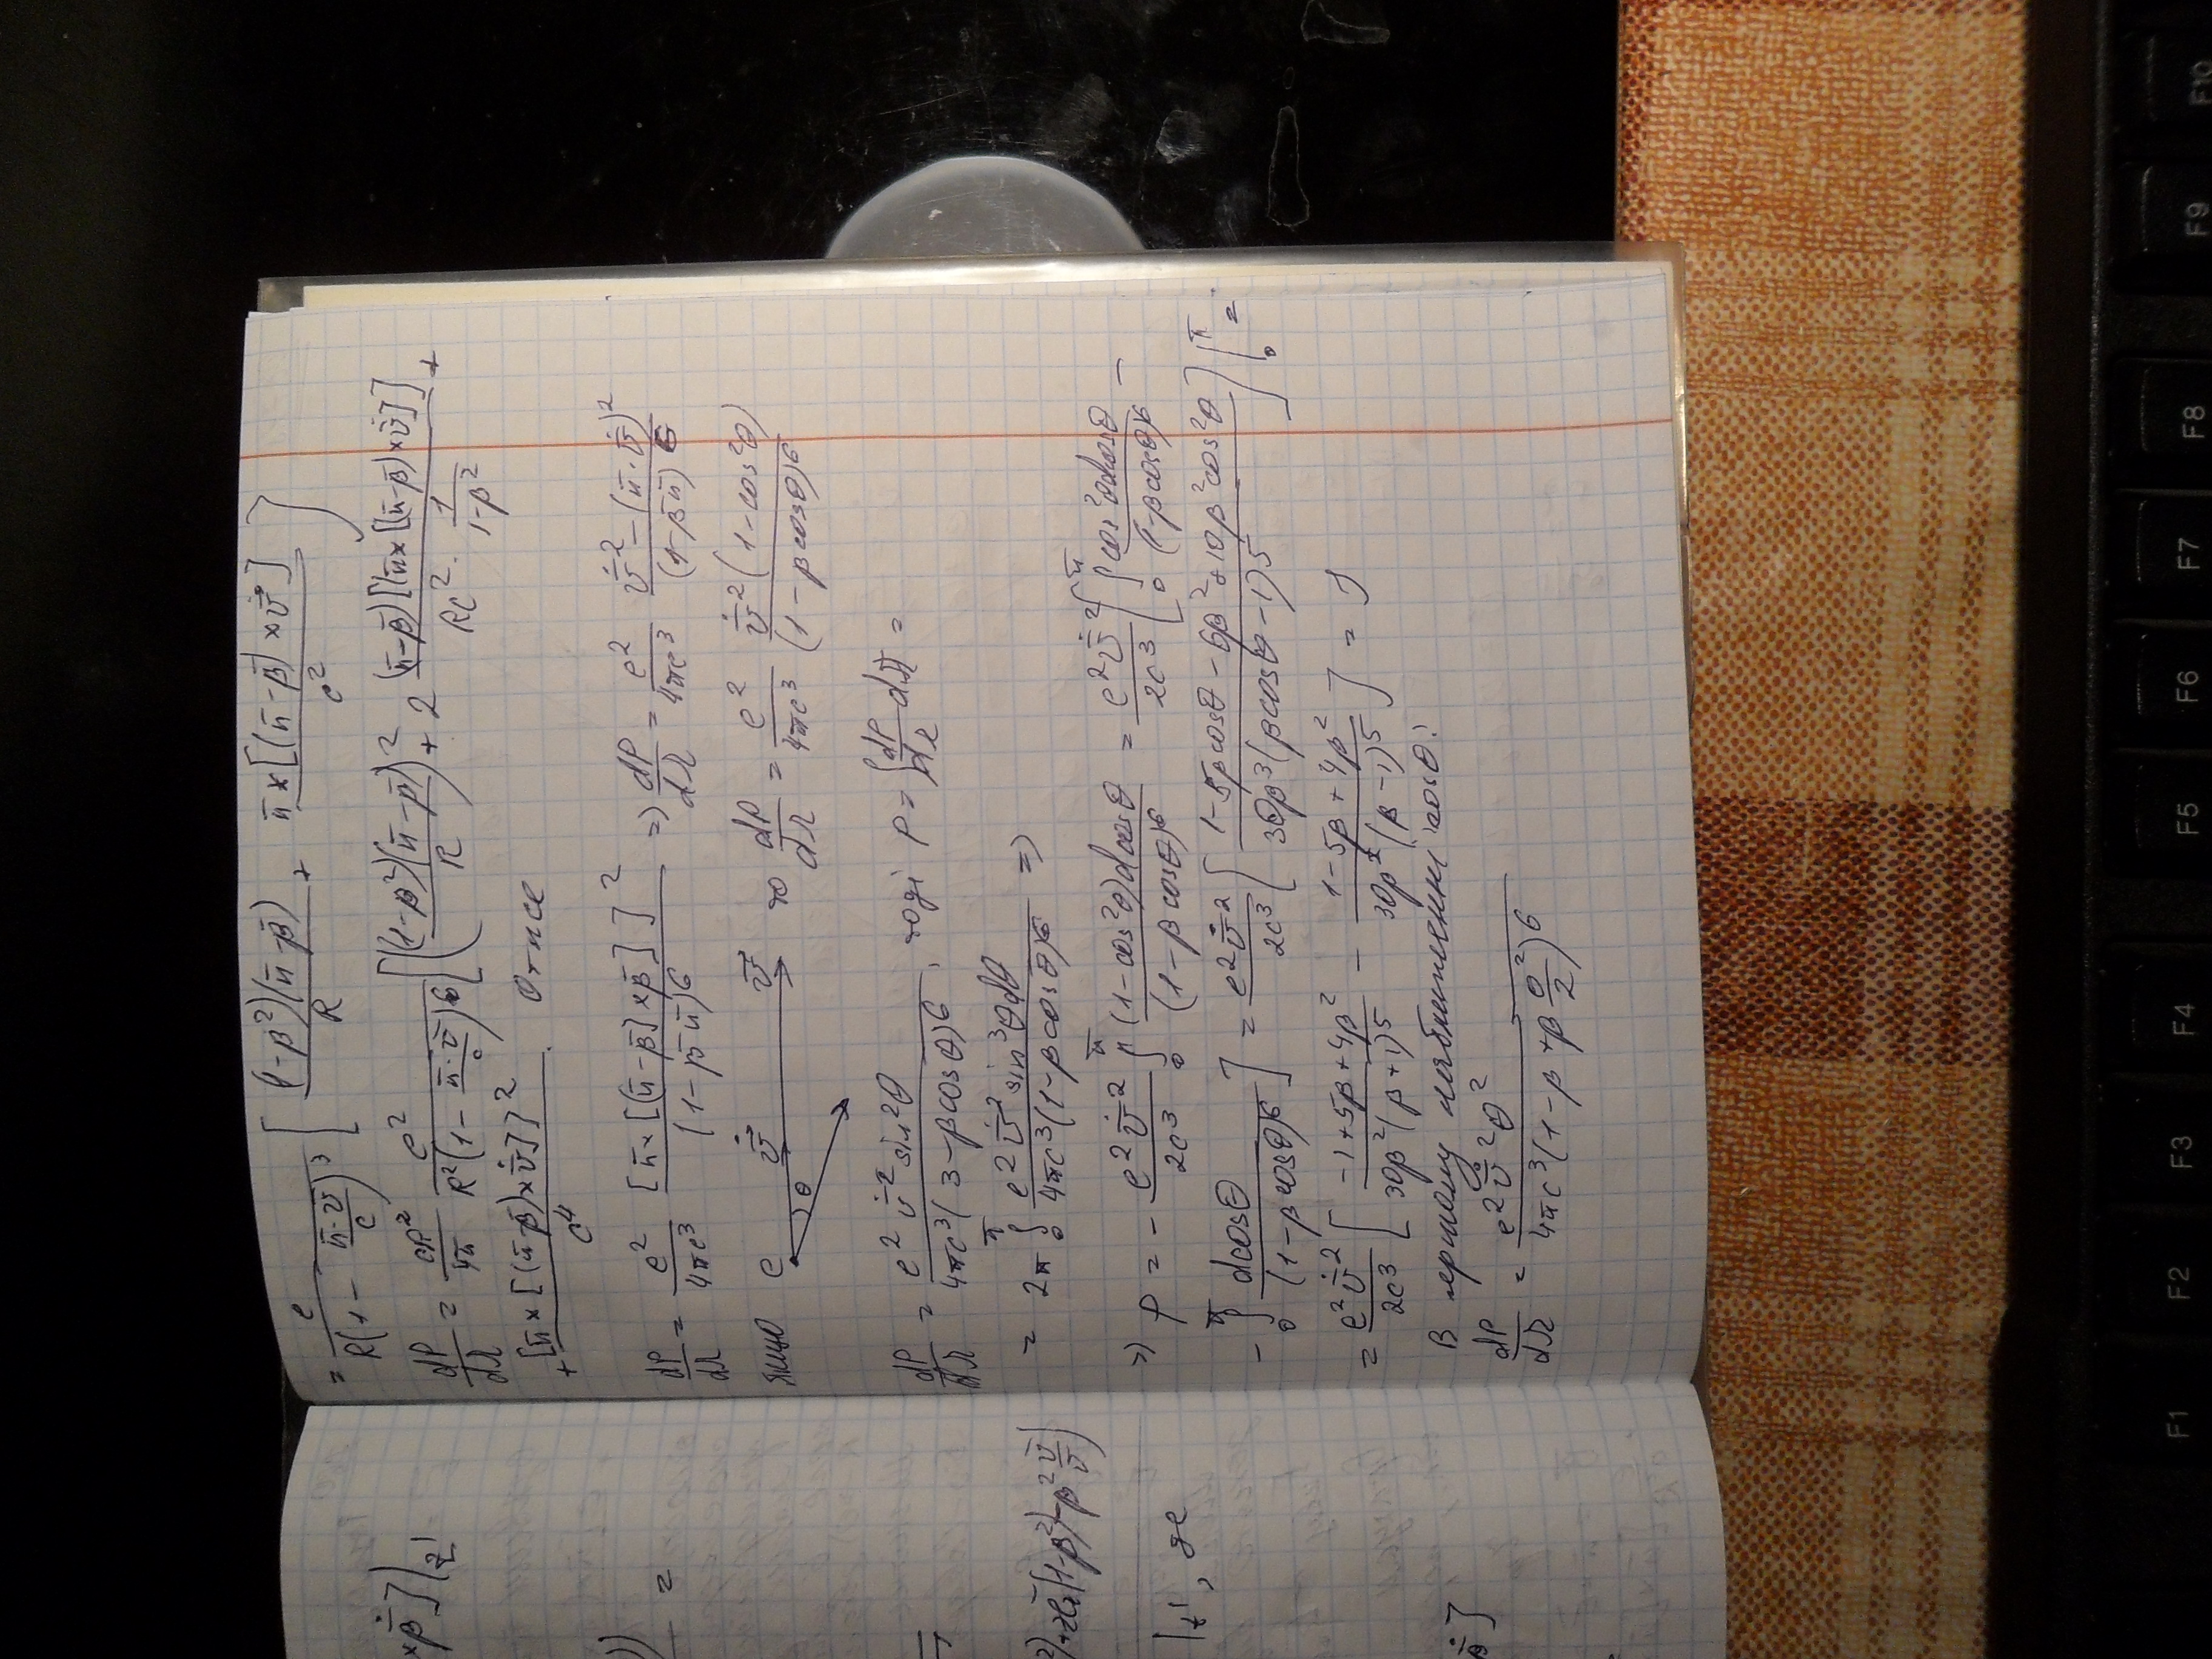 = e/(R(1 - n̄·v̄/c)³) [ (1-β²)(n̄-β̄)/R + n̄×[(n̄-β̄)×v̄̇]/c² ]
dP/dΩ = cR²/4π e²/(R²(1 - n̄·v̄/c)⁶) [ ((1-β²)(n̄-β̄)/R)² + 2 (n̄-β̄)[n̄×[(n̄-β̄)×v̄̇]]/(Rc²· 1/(1-β²)) +
+ [n̄×[(n̄-β̄)×v̄̇]]²/c⁴ . Отже
dP/dΩ = e²/4πc³ [n̄×[(n̄-β̄]×β̄̇]]²/(1-β̄n̄)⁶ => dP/dΩ = e²/4πc³ (v̄̇² - (n̄·v̄̇)²)/(1-β̄n̄)⁶
Якщо e v̄̇ v̄ θ то dP/dΩ = e²/4πc³ v̄̇²(1-cos²θ)/(1-βcosθ)⁶
dP/dΩ = e² v̇² sin²θ/4πc³(3-βcosθ)⁶, тоді P = ∫ dP/dΩ dΩ =
= 2π ∫₀^π e² v̄̇² sin³θdθ/4πc³(1-βcosθ)⁶ =>
=> P = - e² v̄̇²/2c³ ∫₀^π (1-cos²θ)dcosθ/(1-βcosθ)⁶ = e² v̄̇²/2c³ [ ∫₀^π cos²θdcosθ/(1-βcosθ)⁶ -
- ∫₀^π dcosθ/(1-βcosθ)⁶ ] = e² v̄̇²/2c³ [ (1-5βcosθ-6β²+10β²cos²θ)/30β³(βcosθ-1)⁵ ]₀^π =
= e² v̄̇²/2c³ [ (-1+5β+4β²)/30β²(β+1)⁵ - (1-5β+4β²)/30β²(β-1)⁵ ] = I
В першому наближенні cosθ:
dP/dΩ = e² v̄̇² θ²/4πc³(1-β+β θ²/2)⁶
×β̄̇]]|t'
)) =
²)+2n̄(1-β²)-β² v̄/v)
|t' , де
β̄̇]